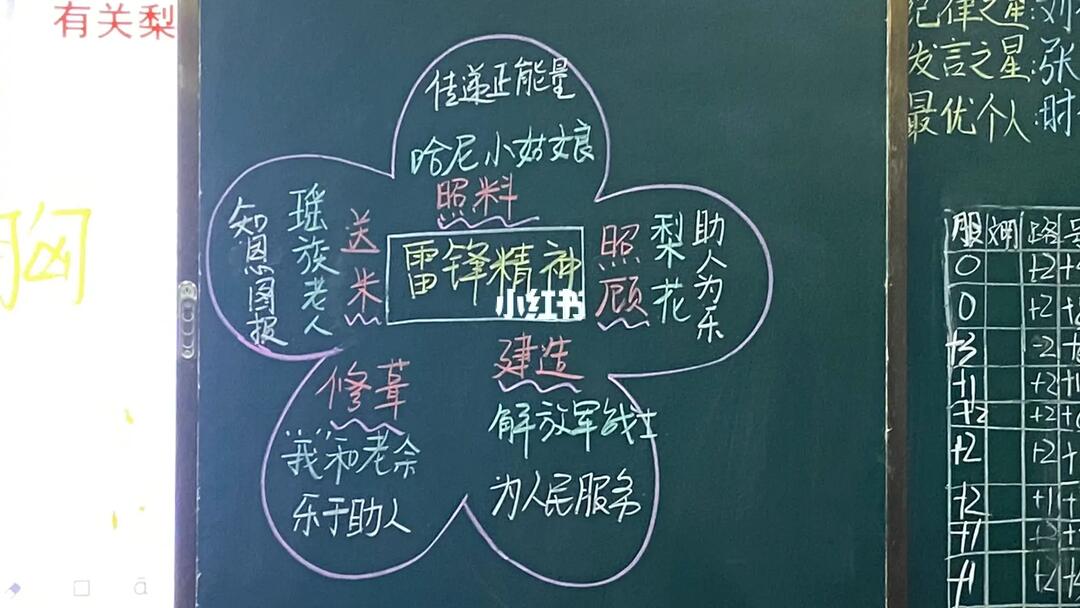 有关梨
胸
传递正能量
哈尼小姑娘
照料
知恩图报
瑶族老人
送米
雷锋精神
小红书
照顾
梨花
助人为乐
修葺
“我”和老余
乐于助人
建造
解放军战士
为人民服务
纪律之星:刘
发言之星:张
最优个人:时
服 路
0 +2
0 +2
+3 -2
+1 +2
+2 +2
+2 +2
+2 +1
+1 +2
+1 +2